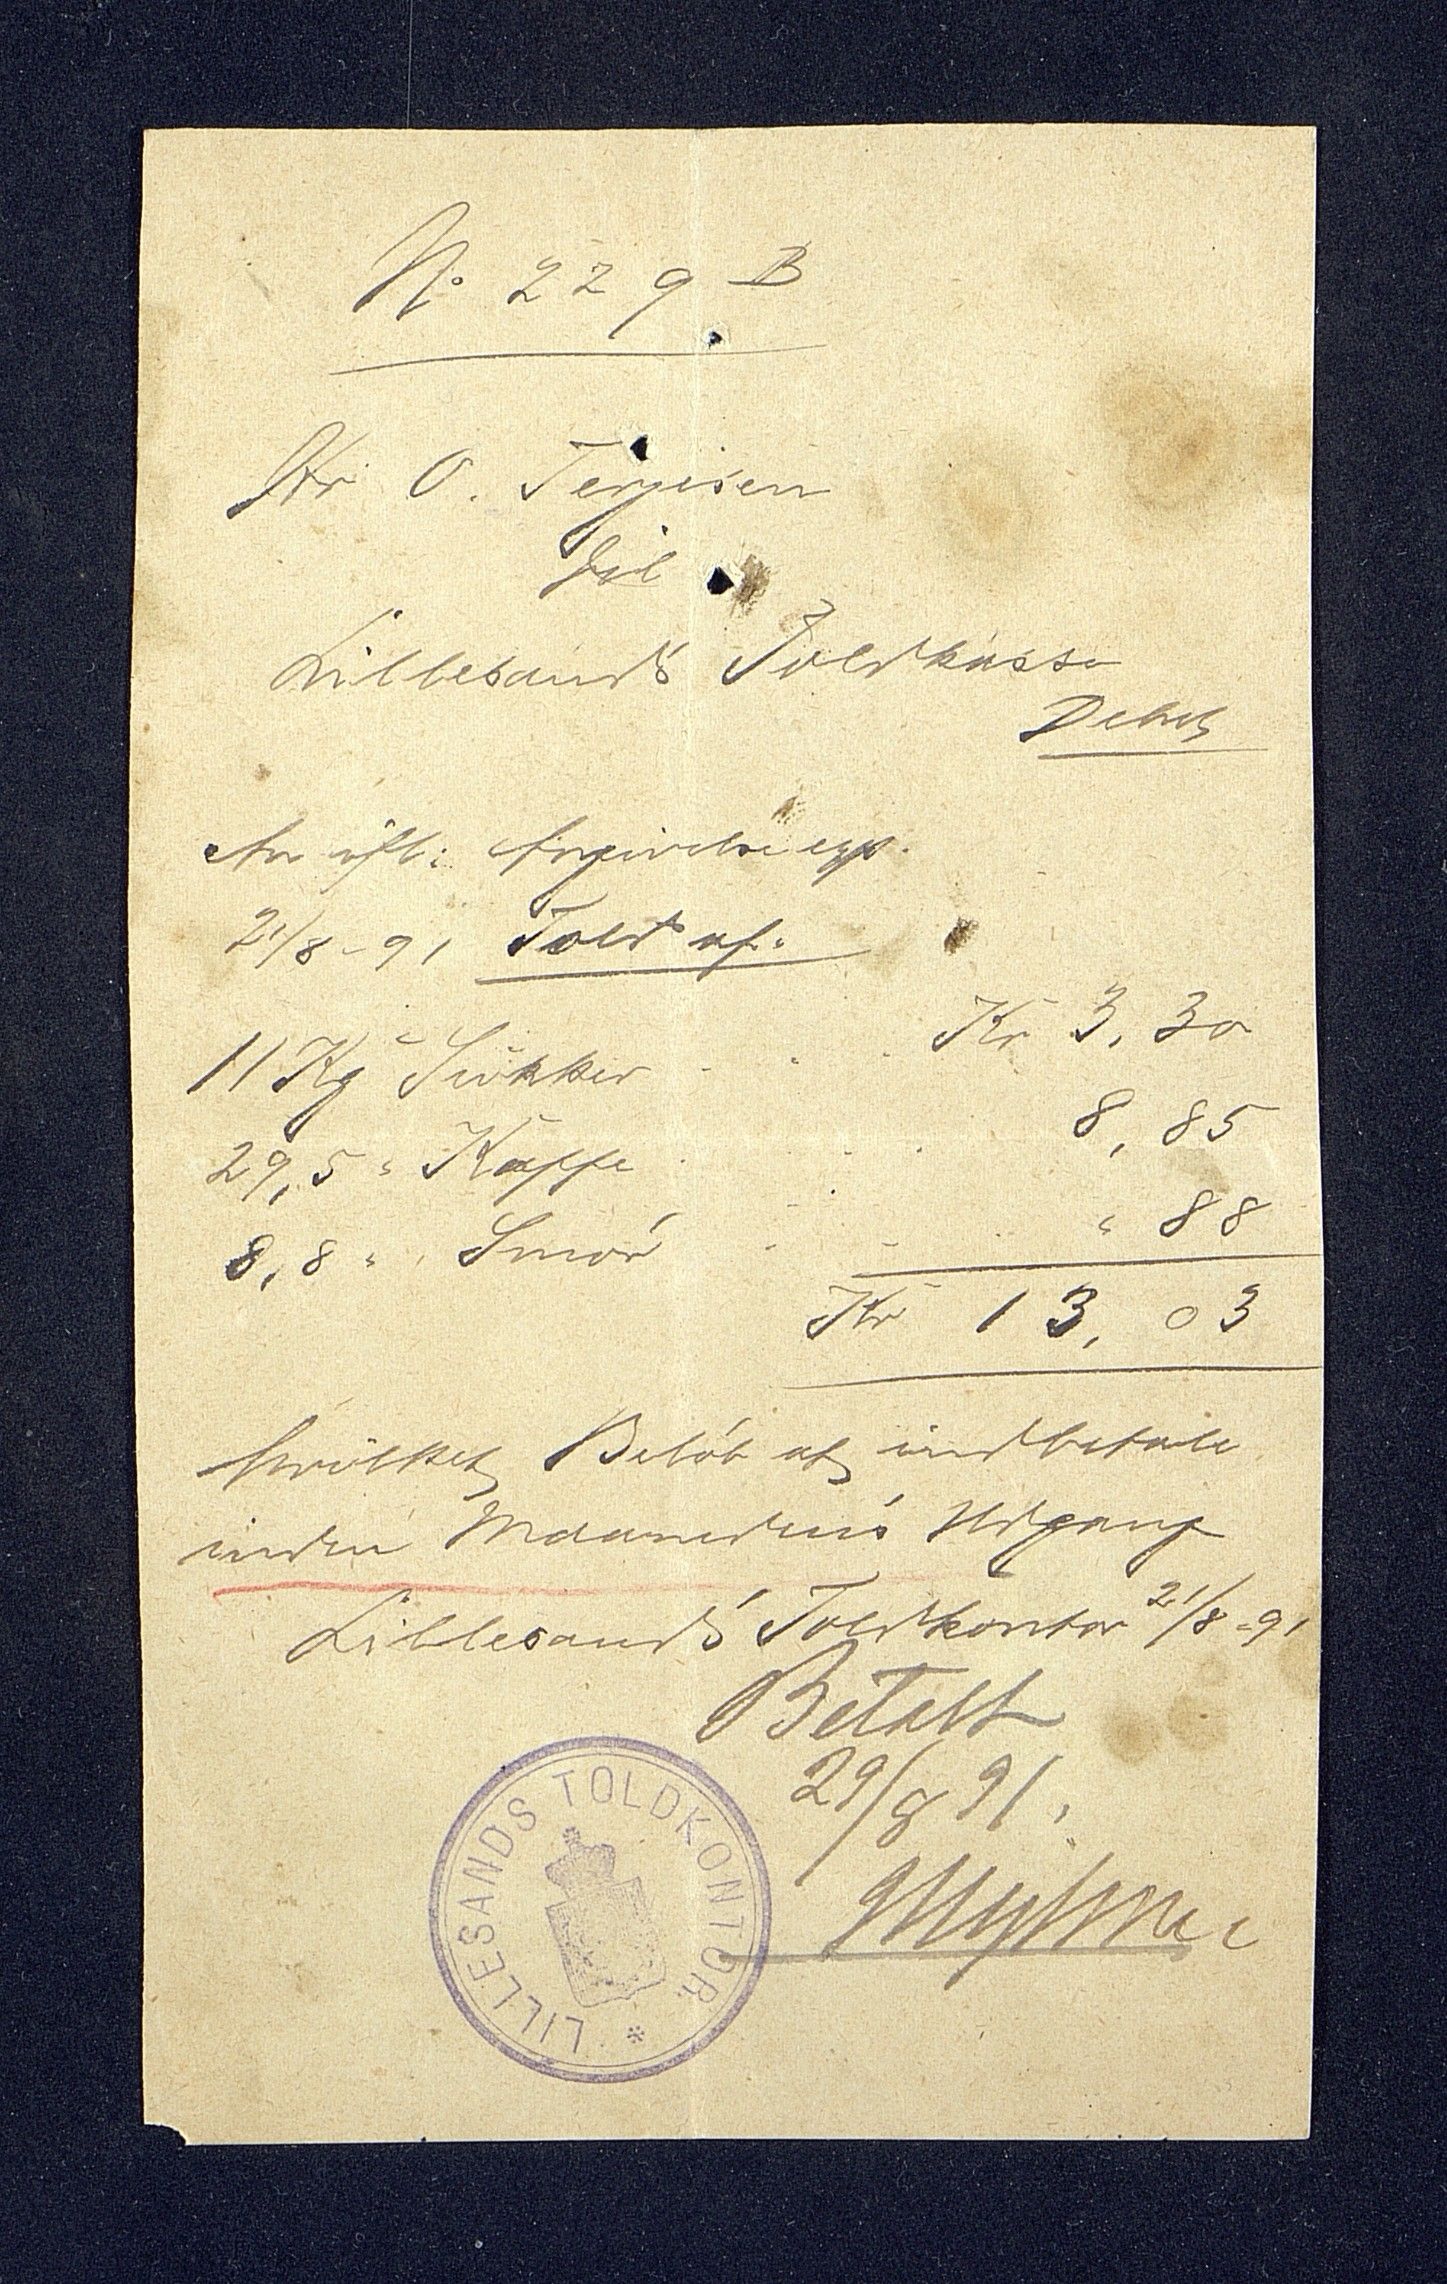 No 229 B
Hr O. Terjesen
til
Lillesands Toldkasse
Debet
An ifl: Angivelse
21/8-91 Told af:
11 Kg Sukker Kr 3,30
29,5 " Kaffe 8,85
8,8 " Smør " 88
Kr 13,03
hvilket Beløb at indbetale
inden Maanedens Udgang
Lillesands Toldkontor 21/8-91
Betalt
29/8 91.
LILLESANDS TOLDKONTOR *